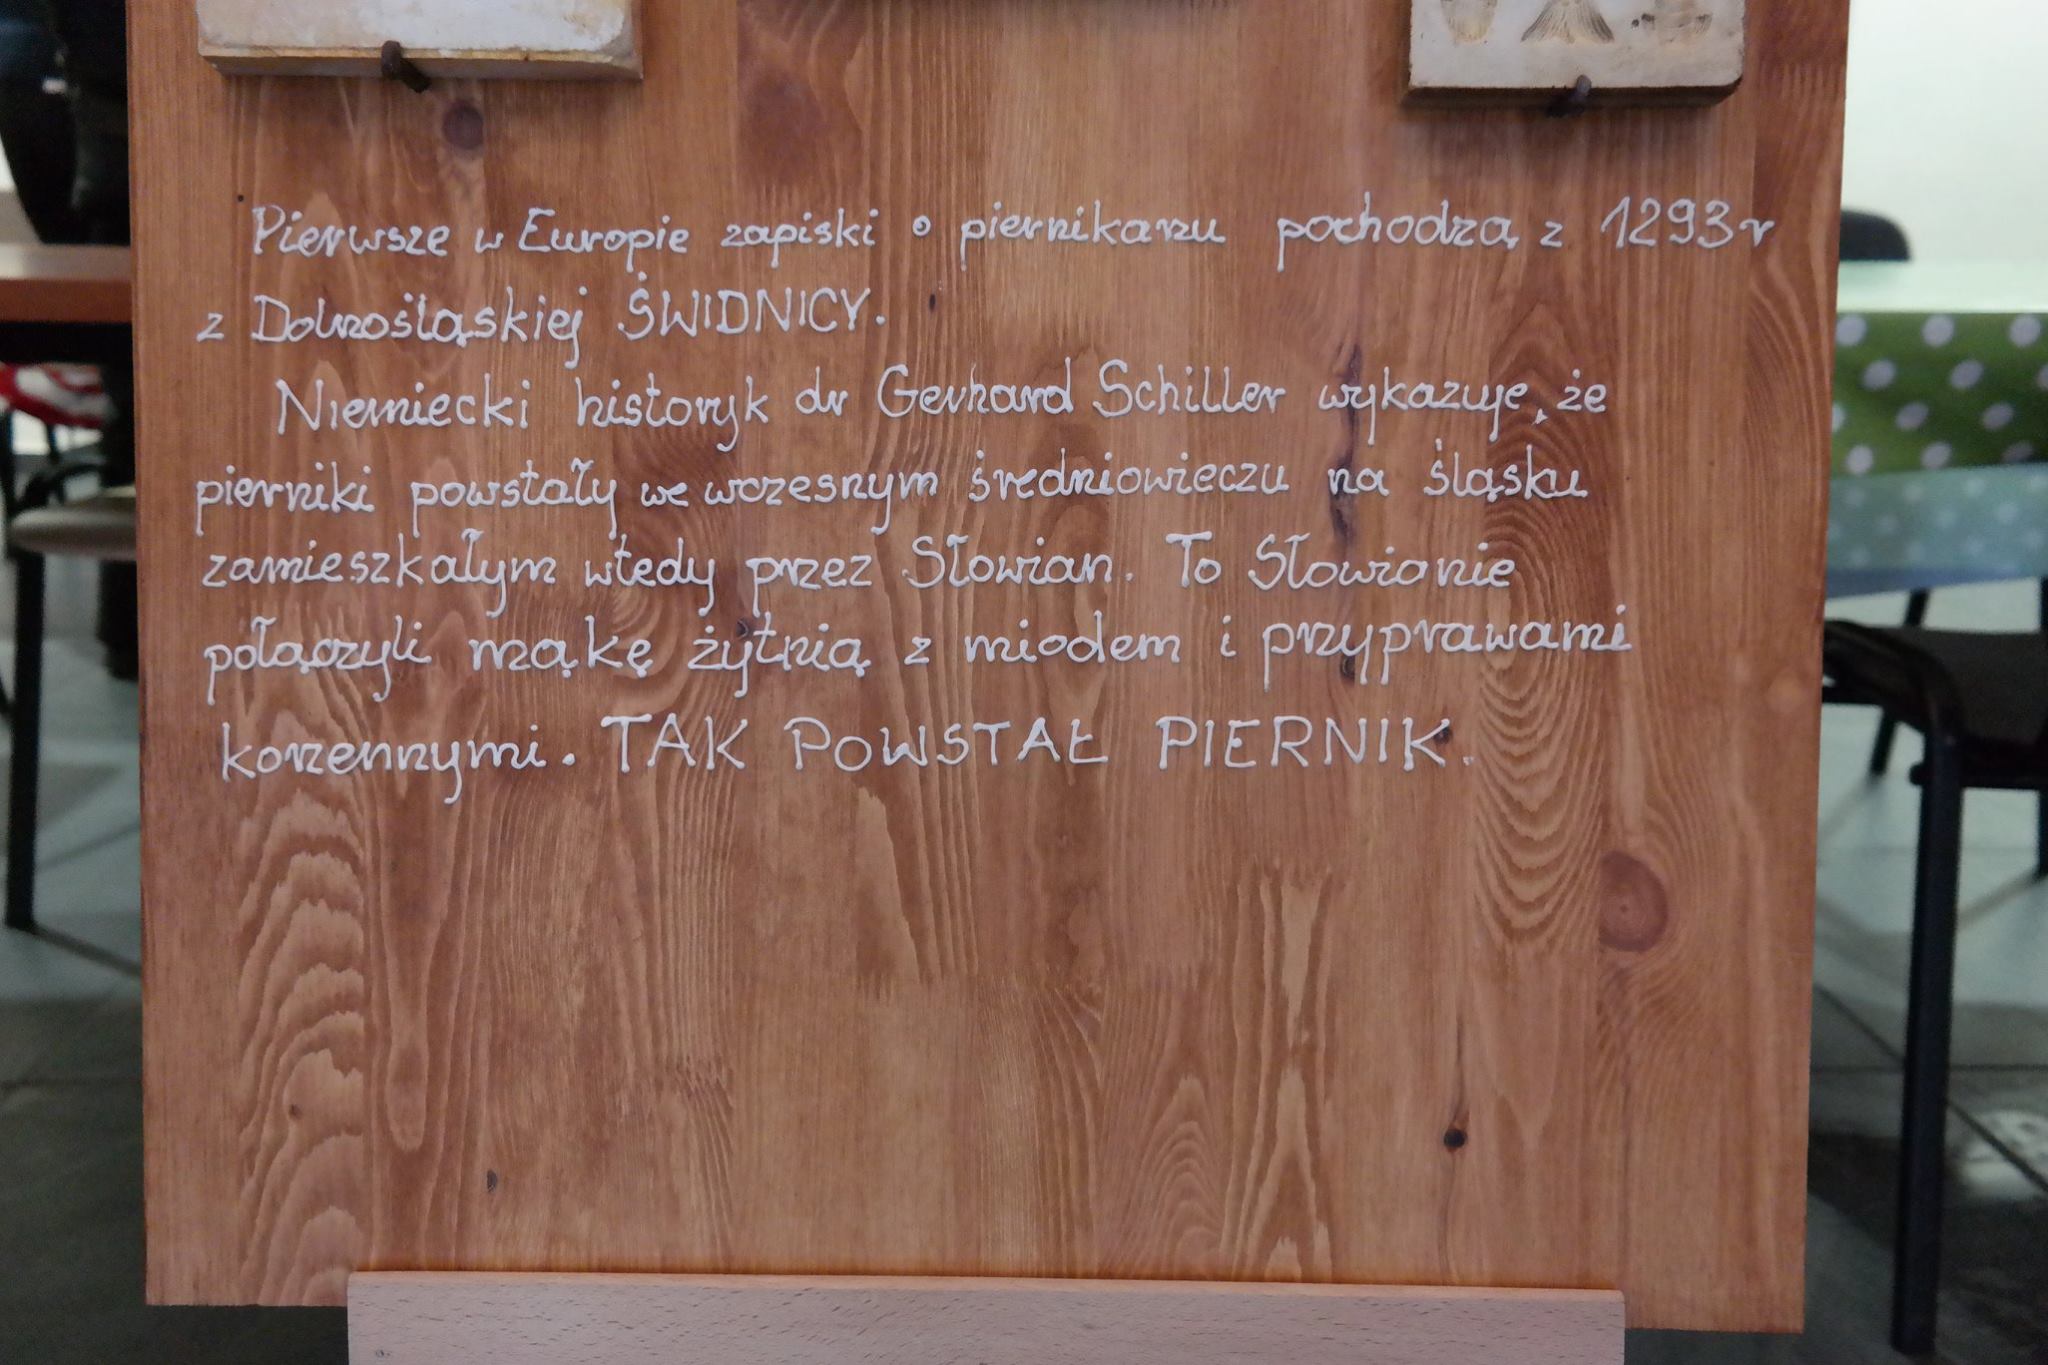 Pierwsze w Europie zapiski o piernikarzu pochodzą z 1293 r
z Dolnośląskiej ŚWIDNICY.
Niemiecki historyk dr Gerhard Schiller wykazuje, że
pierniki powstały we wczesnym średniowieczu na śląsku
zamieszkałym wtedy przez Słowian. To Słowianie
połączyli mąkę żytnią z miodem i przyprawami
korzennymi. TAK POWSTAŁ PIERNIK.